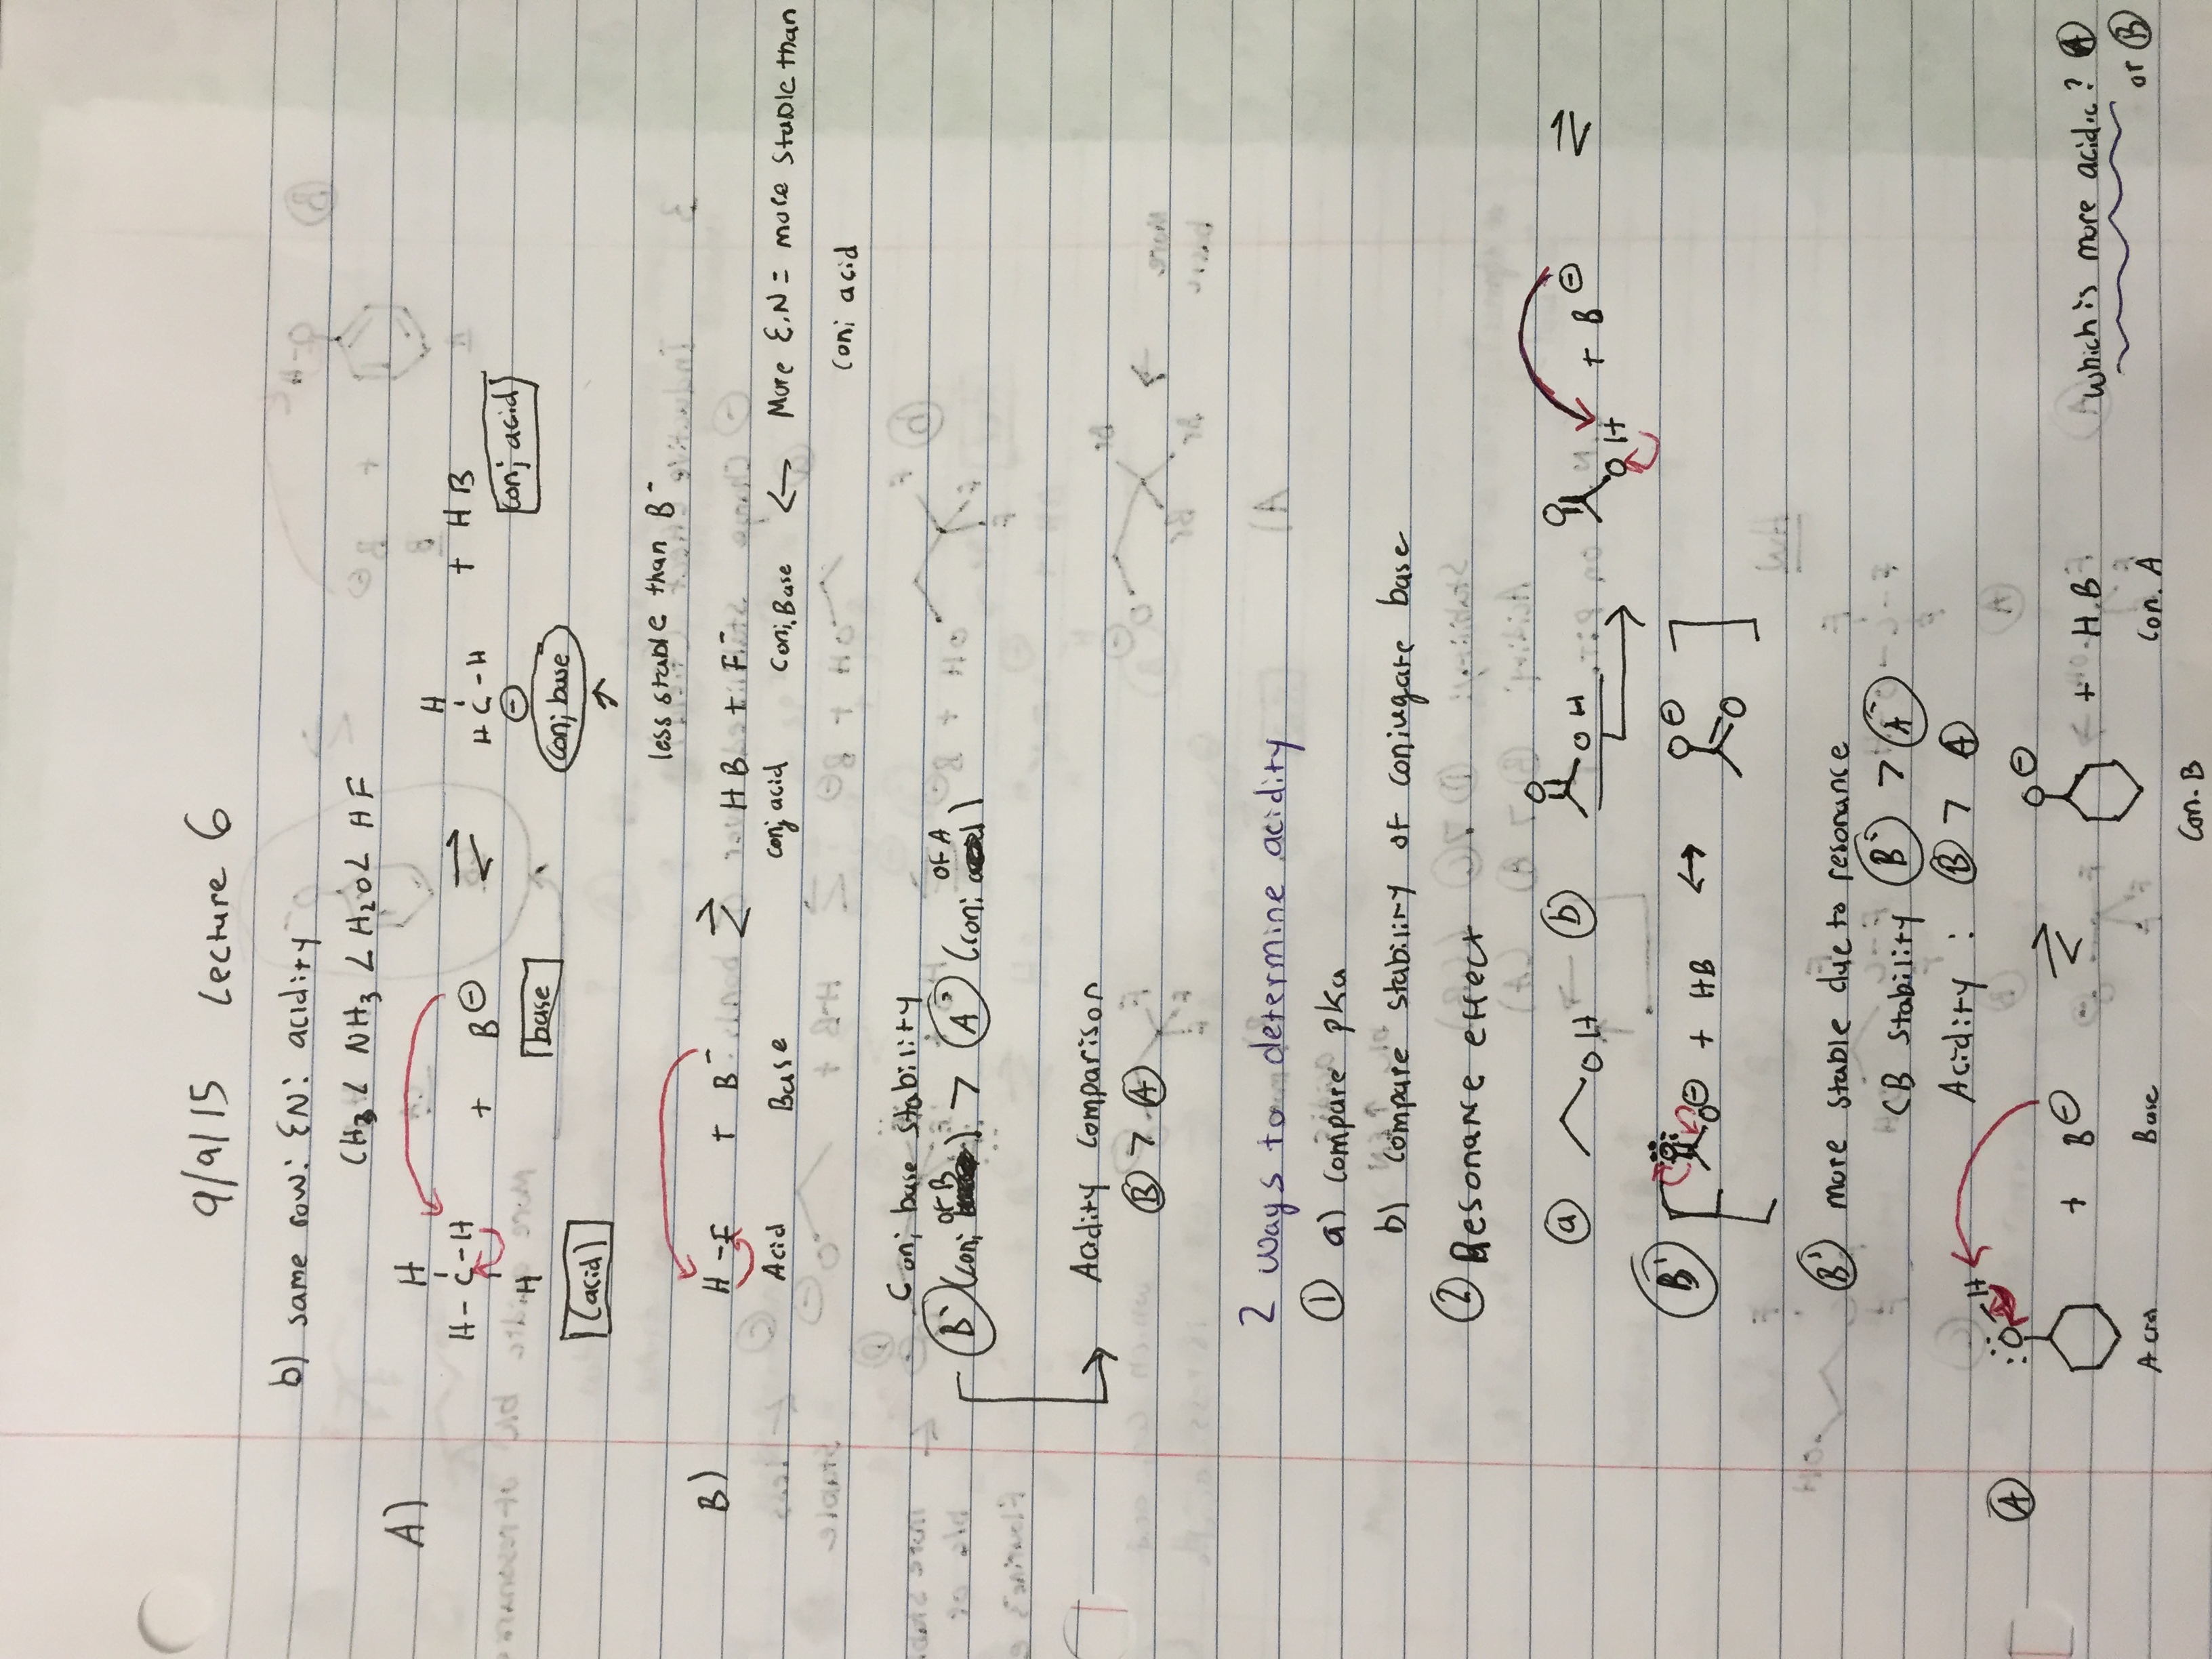 9/9/15 Lecture 6
b) same row: EN: acidity
CH3 < NH3 < H2O < HF
A)
H
H-C-H
H
+ B⊖ ⇌
H
H C-H
⊖
+ HB
acid
base
conj base
conj acid
less stable than B-
B) H-F + B- ⇌ HB + F-
Acid Base conj acid Conj. Base ← More E.N = more stable than
conj acid
Conj base stability
B' (conj of B) > A' (conj of A)
Acidity comparison
B > A
2 ways to determine acidity
① a) compare pKa
b) compare stability of conjugate base
② Resonance effect
a OH b O OH O O H + B⊖ ⇌
B' [ O O⊖ + HB ↔ O⊖ O ]
B' more stable due to resonance
CB stability B' > A'
Acidity: B > A
A OH + B⊖ ⇌ O⊖ + H.B which is more acidic? A
or B
Acid Base Con. B Con. A